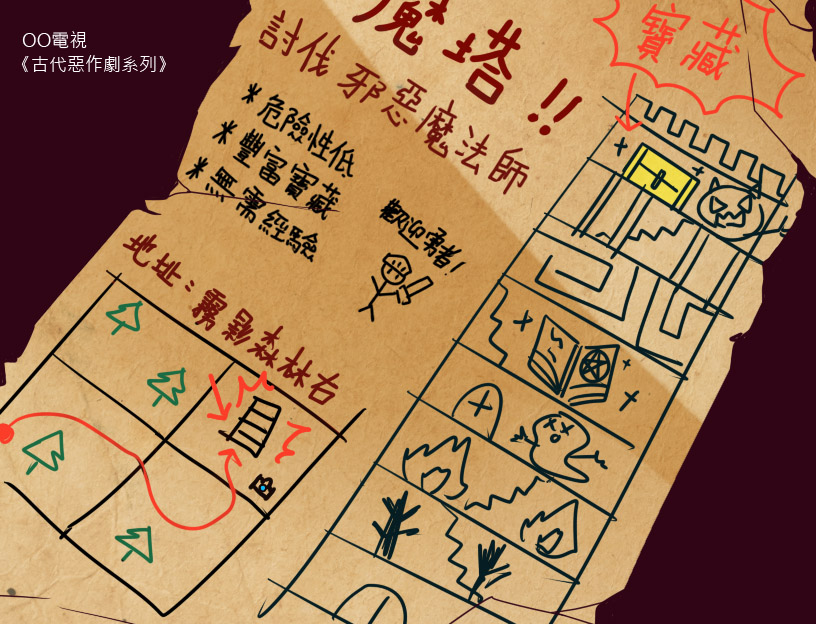 OO電視
《古代惡作劇系列》
魔塔!!
討伐邪惡魔法師
*危險性低
*豐富寶藏
*無需經驗
歡迎勇者!
地址:霧影森林右
寶藏